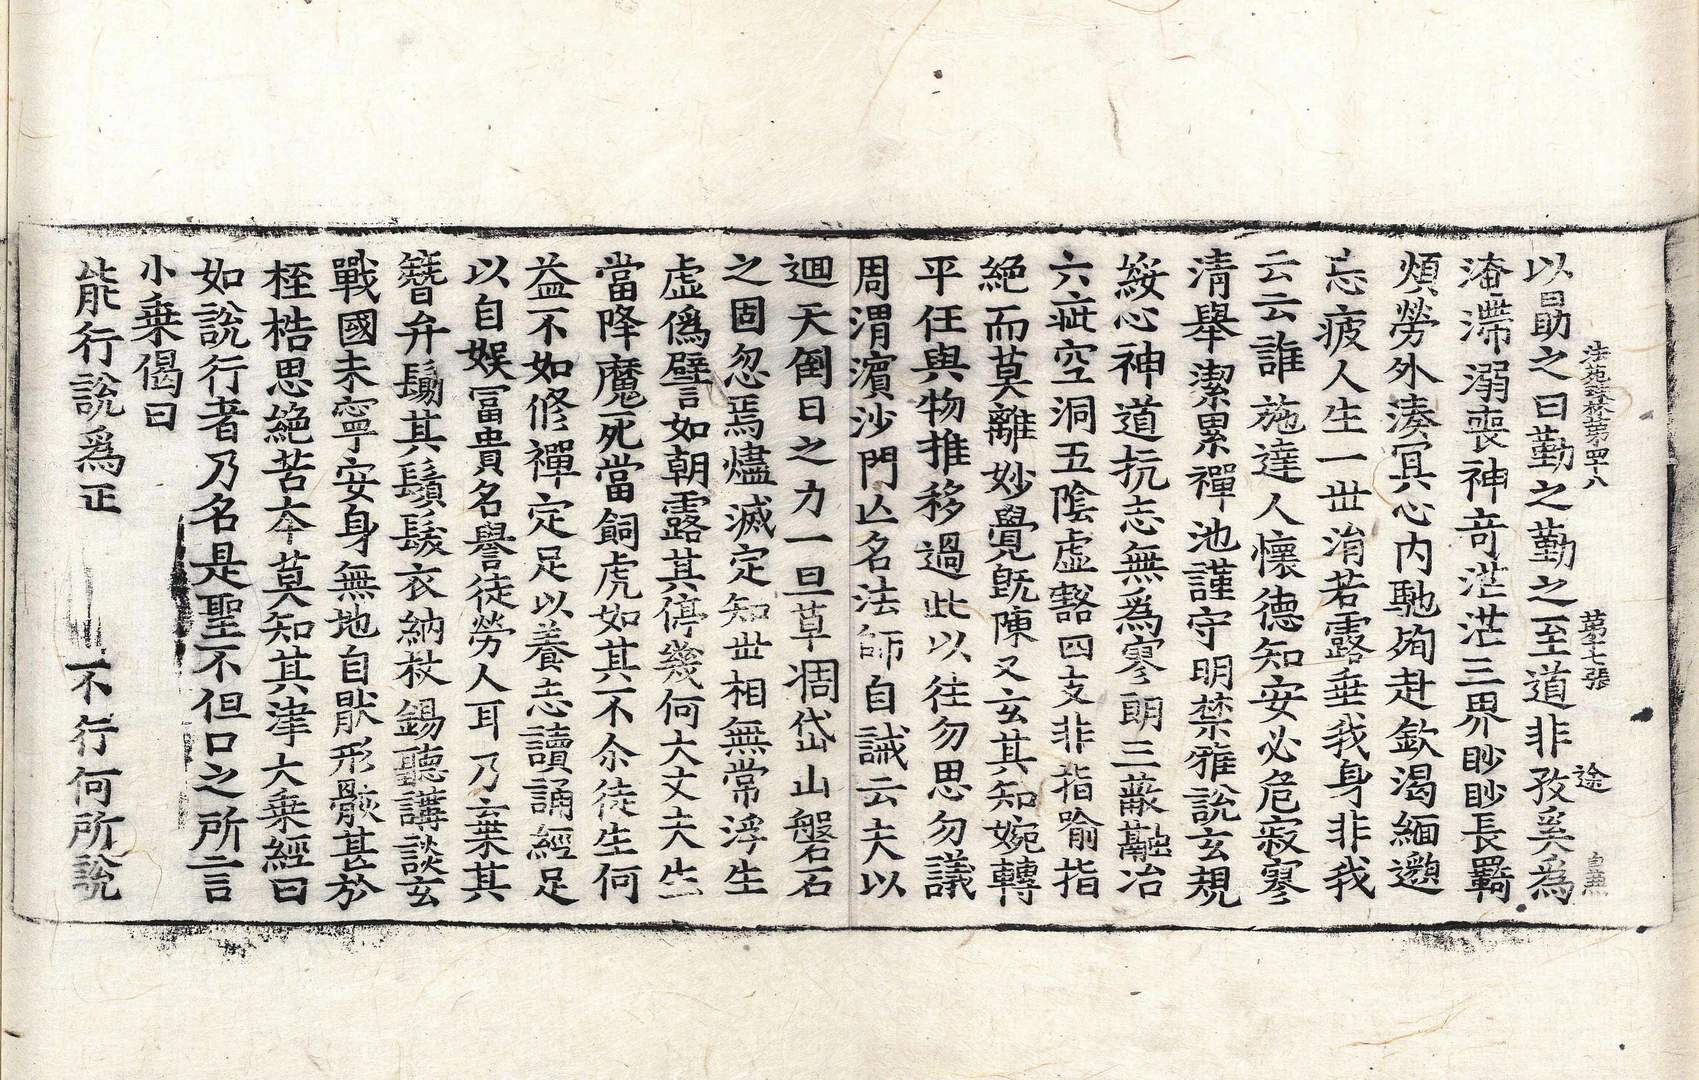 法苑珠林第四十八　第七張　途
以勗之曰勤之勤之至道非孜奚爲
淹滯溺喪神竒茫茫三界眇眇長羇
煩勞外湊冥心內馳殉赴欽渴緬邈
忘疲人生一世涓若露垂我身非我
云云誰施達人懷德知安必危寂寥
清舉潔累禪池謹守明禁雅說玄規
綏心神道抗志無爲寥朗三蔽融冶
六疵空洞五陰虛豁四支非指喻指
絕而莫離妙覺旣陳又玄其知婉轉
平任與物推移過此以往勿思勿議
周渭濱沙門亡名法師自誡云夫以
迴天倒日之力一旦草凋岱山磐石
之固忽焉燼滅定知世相無常浮生
虛僞譬如朝露其停幾何大丈夫生
當降魔死當飼虎如其不尒徒生何
益不如修禪定足以養志讀誦經足
以自娛冨貴名譽徒勞人耳乃弃其
簪弁剔其鬚髮衣納杖錫聽講談玄
戰國未寧安身無地自猒形骸甚於
桎梏思絕苦本莫知其津大乗經曰
如說行者乃名是聖不但口之所言
小乗偈曰
能行說爲正　不行何所說